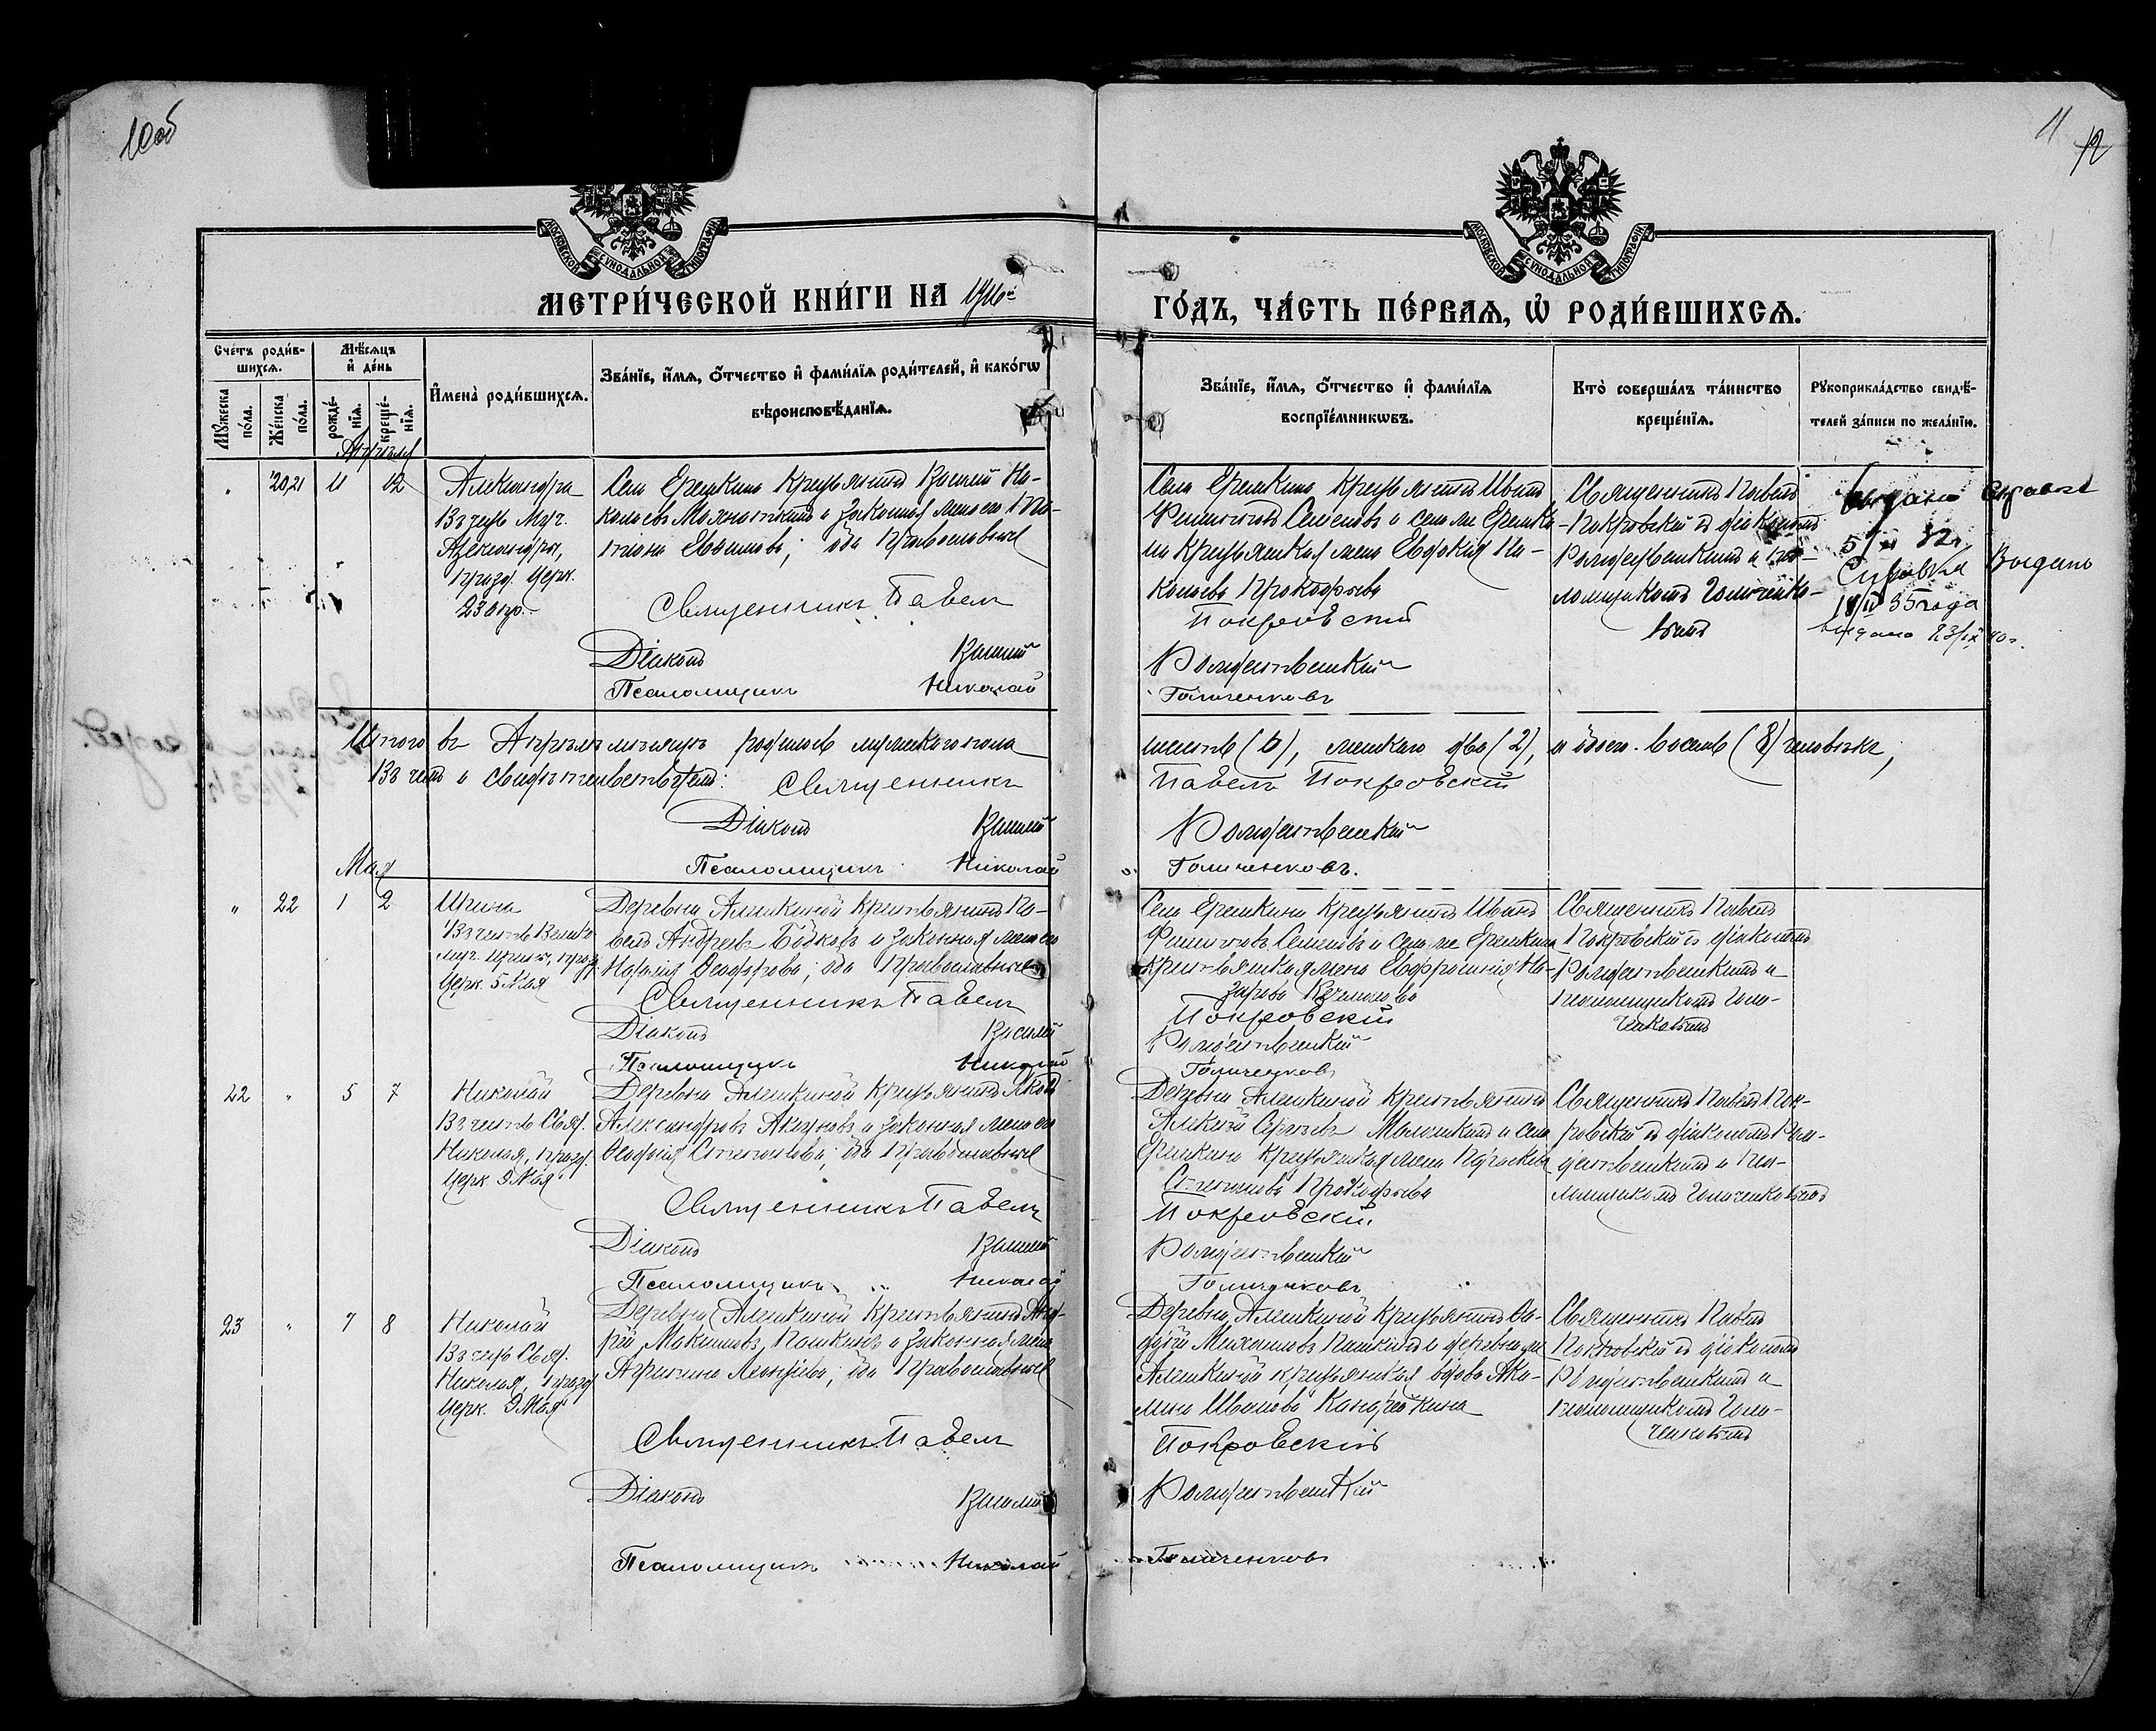 10об
11
12
МОСКОВСКОЙ СѴНОДАЛЬНОЙ ТИПОГРАФІИ
МОСКОВСКОЙ СѴНОДАЛЬНОЙ ТИПОГРАФІИ
МЕТРИ́ЧЕСКОЙ КНИ́ГИ НА 1916й
ГО́ДЪ, ЧА́СТЬ ПЕ́РВАѦ, Ѡ҆ РОДИ́ВШИХСѦ.
Сче́тъ роди́в-
шихсѧ.
Мѣ́сѧцъ
и҆ де́нь
Мꙋ́жеска
по́ла.
Же́нска
по́ла.
рожде́-
нїѧ.
креще́-
нїѧ.
И҆мена̀ роди́вшихсѧ.
Зва́нїе, и҆́мѧ, ѻ҆́тчество и҆ фами́лїѧ роди́телей, и҆ како́гѡ
вѣроисповѣ́данїѧ.
Зва́нїе, и҆́мѧ, ѻ҆́тчество и҆ фами́лїѧ
воспрїе́мникѡвъ.
Кто̀ соверша́лъ та́инство
креще́нїѧ.
Рꙋкоприкла́дство свидѣ́-
телей за́писи по жела́нїю.
Апрѣль
20,21 11 12
Александра
Въ честь муч.
Александры,
празд. Церк.
23 апр.
Села Еремкина крестьянинъ Василій
и законная жена его
оба православные
Священникъ Павелъ
Діаконъ Василій
Псаломщикъ Николай
Села Еремкина крестьянинъ Иванъ
Филипповъ Семеновъ и села Еремки-
на крестьянская жена Евдокія
Прокофьева
Покровскій
Рождественскій
Голиченковъ
Священникъ Павелъ
Покровскій съ діакономъ
Рождественскимъ и пса-
ломщикомъ Голиченко-
вымъ
Выдана справка
5 32
Справка Выдана
18/IV 35 года
выдано 23/IX 40 г.
Итого въ Апрѣлѣ мѣсяцѣ родилось мужескаго пола
шесть (6), женскаго два (2), и обоего восемь (8) человѣкъ,
Въ чемъ и свидѣтельствуемъ: Священникъ
Павелъ Покровскій
Діаконъ Василій
Рождественскій
Псаломщикъ Николай
Голиченковъ.
Мая
" 22 1 2
Ирина
Въ честь Велико
муч. Ирины, празд.
Церк. 5 Мая
Деревни Алешкиной крестьянинъ Па-
велъ Андреевъ Бобковъ и законная жена его
Наталія оба православные
Священникъ Павелъ
Діаконъ Василій
Псаломщикъ Николай
Села Еремкина крестьянинъ Иванъ
Филипповъ Семеновъ и села Еремкина
крестьянская жена Евфросинія На-
зарова
Покровскій
Рождественскій
Голиченковъ
Священникъ Павелъ
Покровскій съ діакономъ
Рождественскимъ и
псаломщикомъ Голи-
ченковымъ
22 " 5 7
Николай
Въ честь Свят.
Николая, празд.
Церк 9 Мая
Деревни Алешкиной крестьянинъ Яковъ
Александровъ и законная жена его
оба православные
Священникъ Павелъ
Діаконъ Василій
Псаломщикъ Николай
Деревни Алешкиной крестьянинъ
Алексѣй Сергѣевъ и села
Еремкина крестьянская жена Параскева
Степанова Прокофьева
Покровскій
Рождественскій
Голиченковъ
Священникъ Павелъ Пок-
ровскій съ діакономъ Рож-
дественскимъ и пса-
ломщикомъ Голиченковымъ
23 " 7 8
Николай
Въ честь Свят.
Николая, празд.
Церк. 9 Мая
Деревни Алешкиной крестьянинъ Анд-
рей Максимовъ Пашкинъ и законная жена
Агриппина Леонтьева; оба православные
Священникъ Павелъ
Діаконъ Василій
Псаломщикъ Николай
Деревни Алешкиной крестьянинъ
Михаиловъ Пашкинъ и деревни
Алешкиной крестьянская вдова Аку-
лина Иванова
Покровскій
Рождественскій
Голиченковъ
Священникъ Павелъ
Покровскій съ діакономъ
Рождественскимъ и
псаломщикомъ Голи-
ченковымъ